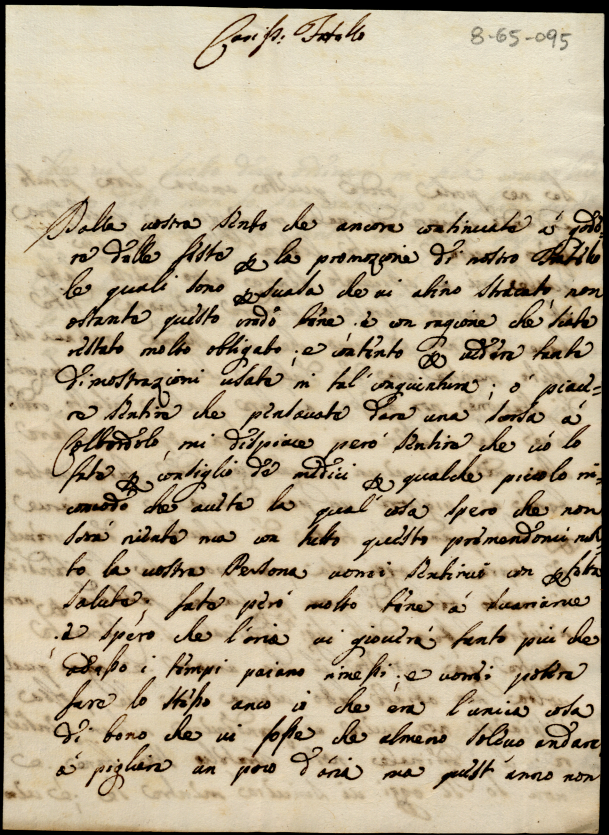 Cariss: Fratello
8-65-095
Dalla vostra sento che ancora continuate á gode=
re delle feste la promozione di nostro Fratello
le quali sono che vi abino straccato, non
ostante questo vedo bene. è con ragione che siate
restato molto obligato; e contento vedere tante
dimostrazioni usate in tal congiuntura; ó piace=
re sentire che pensavate dare una scorsa á
mi dispiace peró sentire che ció lo
fate consiglio de medici qualche piccolo in=
comodo che avete la qual cosa spero che non
sará niente ma con tutto questo premendomi
to la vostra Persona vorrei sentirvi con
salute, fate peró molto bene á svariarve
è spero che l'aria vi gioverá tanto piú che
adesso i tempi paiano rimessi; e vorrei potere
fare lo stesso anco io che era l'unica cosa
di bono che vi fosse che almeno solevo andare
á pigliare un poco d'aria ma quest anno non